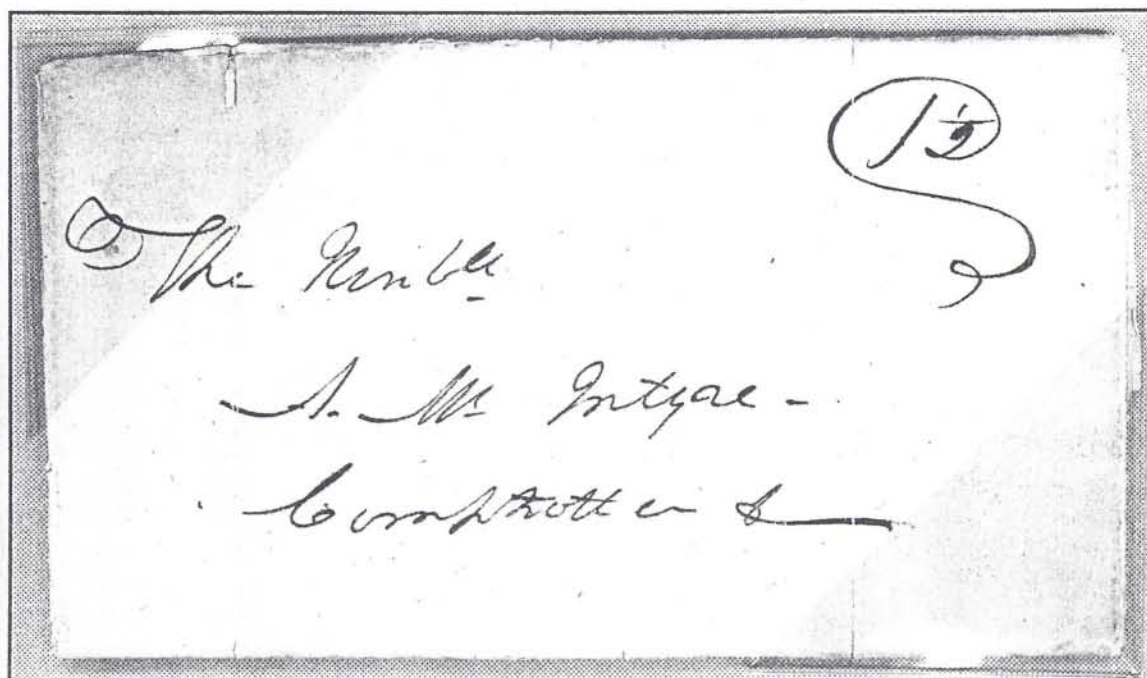 1½
The Honble
A. Mc Intyre -
Comptroller &